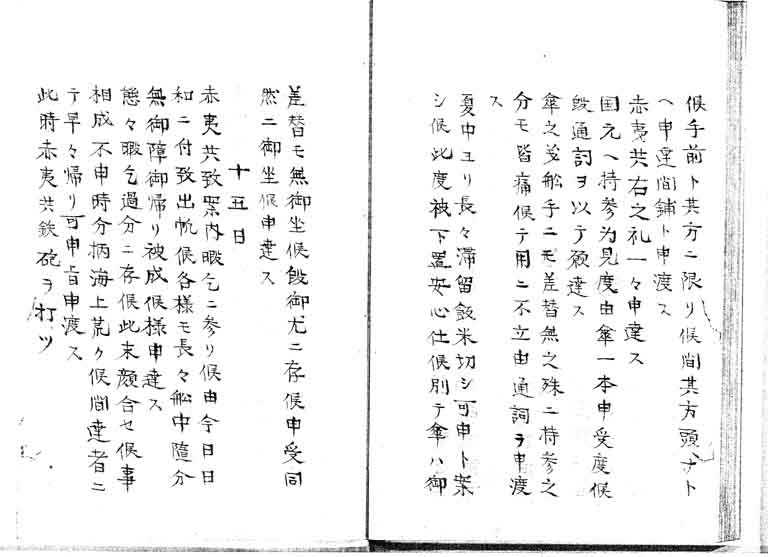 候手前ト其方ニ限リ候間其方頭ヘナト
ヘ申達間鋪ト申渡ス
赤夷共右之礼一々申達ス
国元ヘ持参為見度由傘一本申受度候
段通詞ヲ以テ願達ス
傘之義船手ニモ差替無之殊ニ持参之
分モ皆痛候テ用ニ不立由通詞ヲ申渡
ス
夏中ヨリ長々滞留飯米切シ可申ト案
シ候此度被下置安心仕候別テ傘ハ御
差替モ無御坐候段御尤ニ存候申受同
然ニ御坐候申達ス
十五日
赤夷共致案内暇乞ニ参リ候由今日日
和ニ付致出帆候各様モ長々船中随分
無御障御帰リ被成候様申達ス
態々暇乞過分ニ存候此末顔合セ候事
相成不申時分柄海上荒ク候間達者ニ
テ早々帰リ可申旨申渡ス
此時赤夷共鉄砲ヲ打ツ